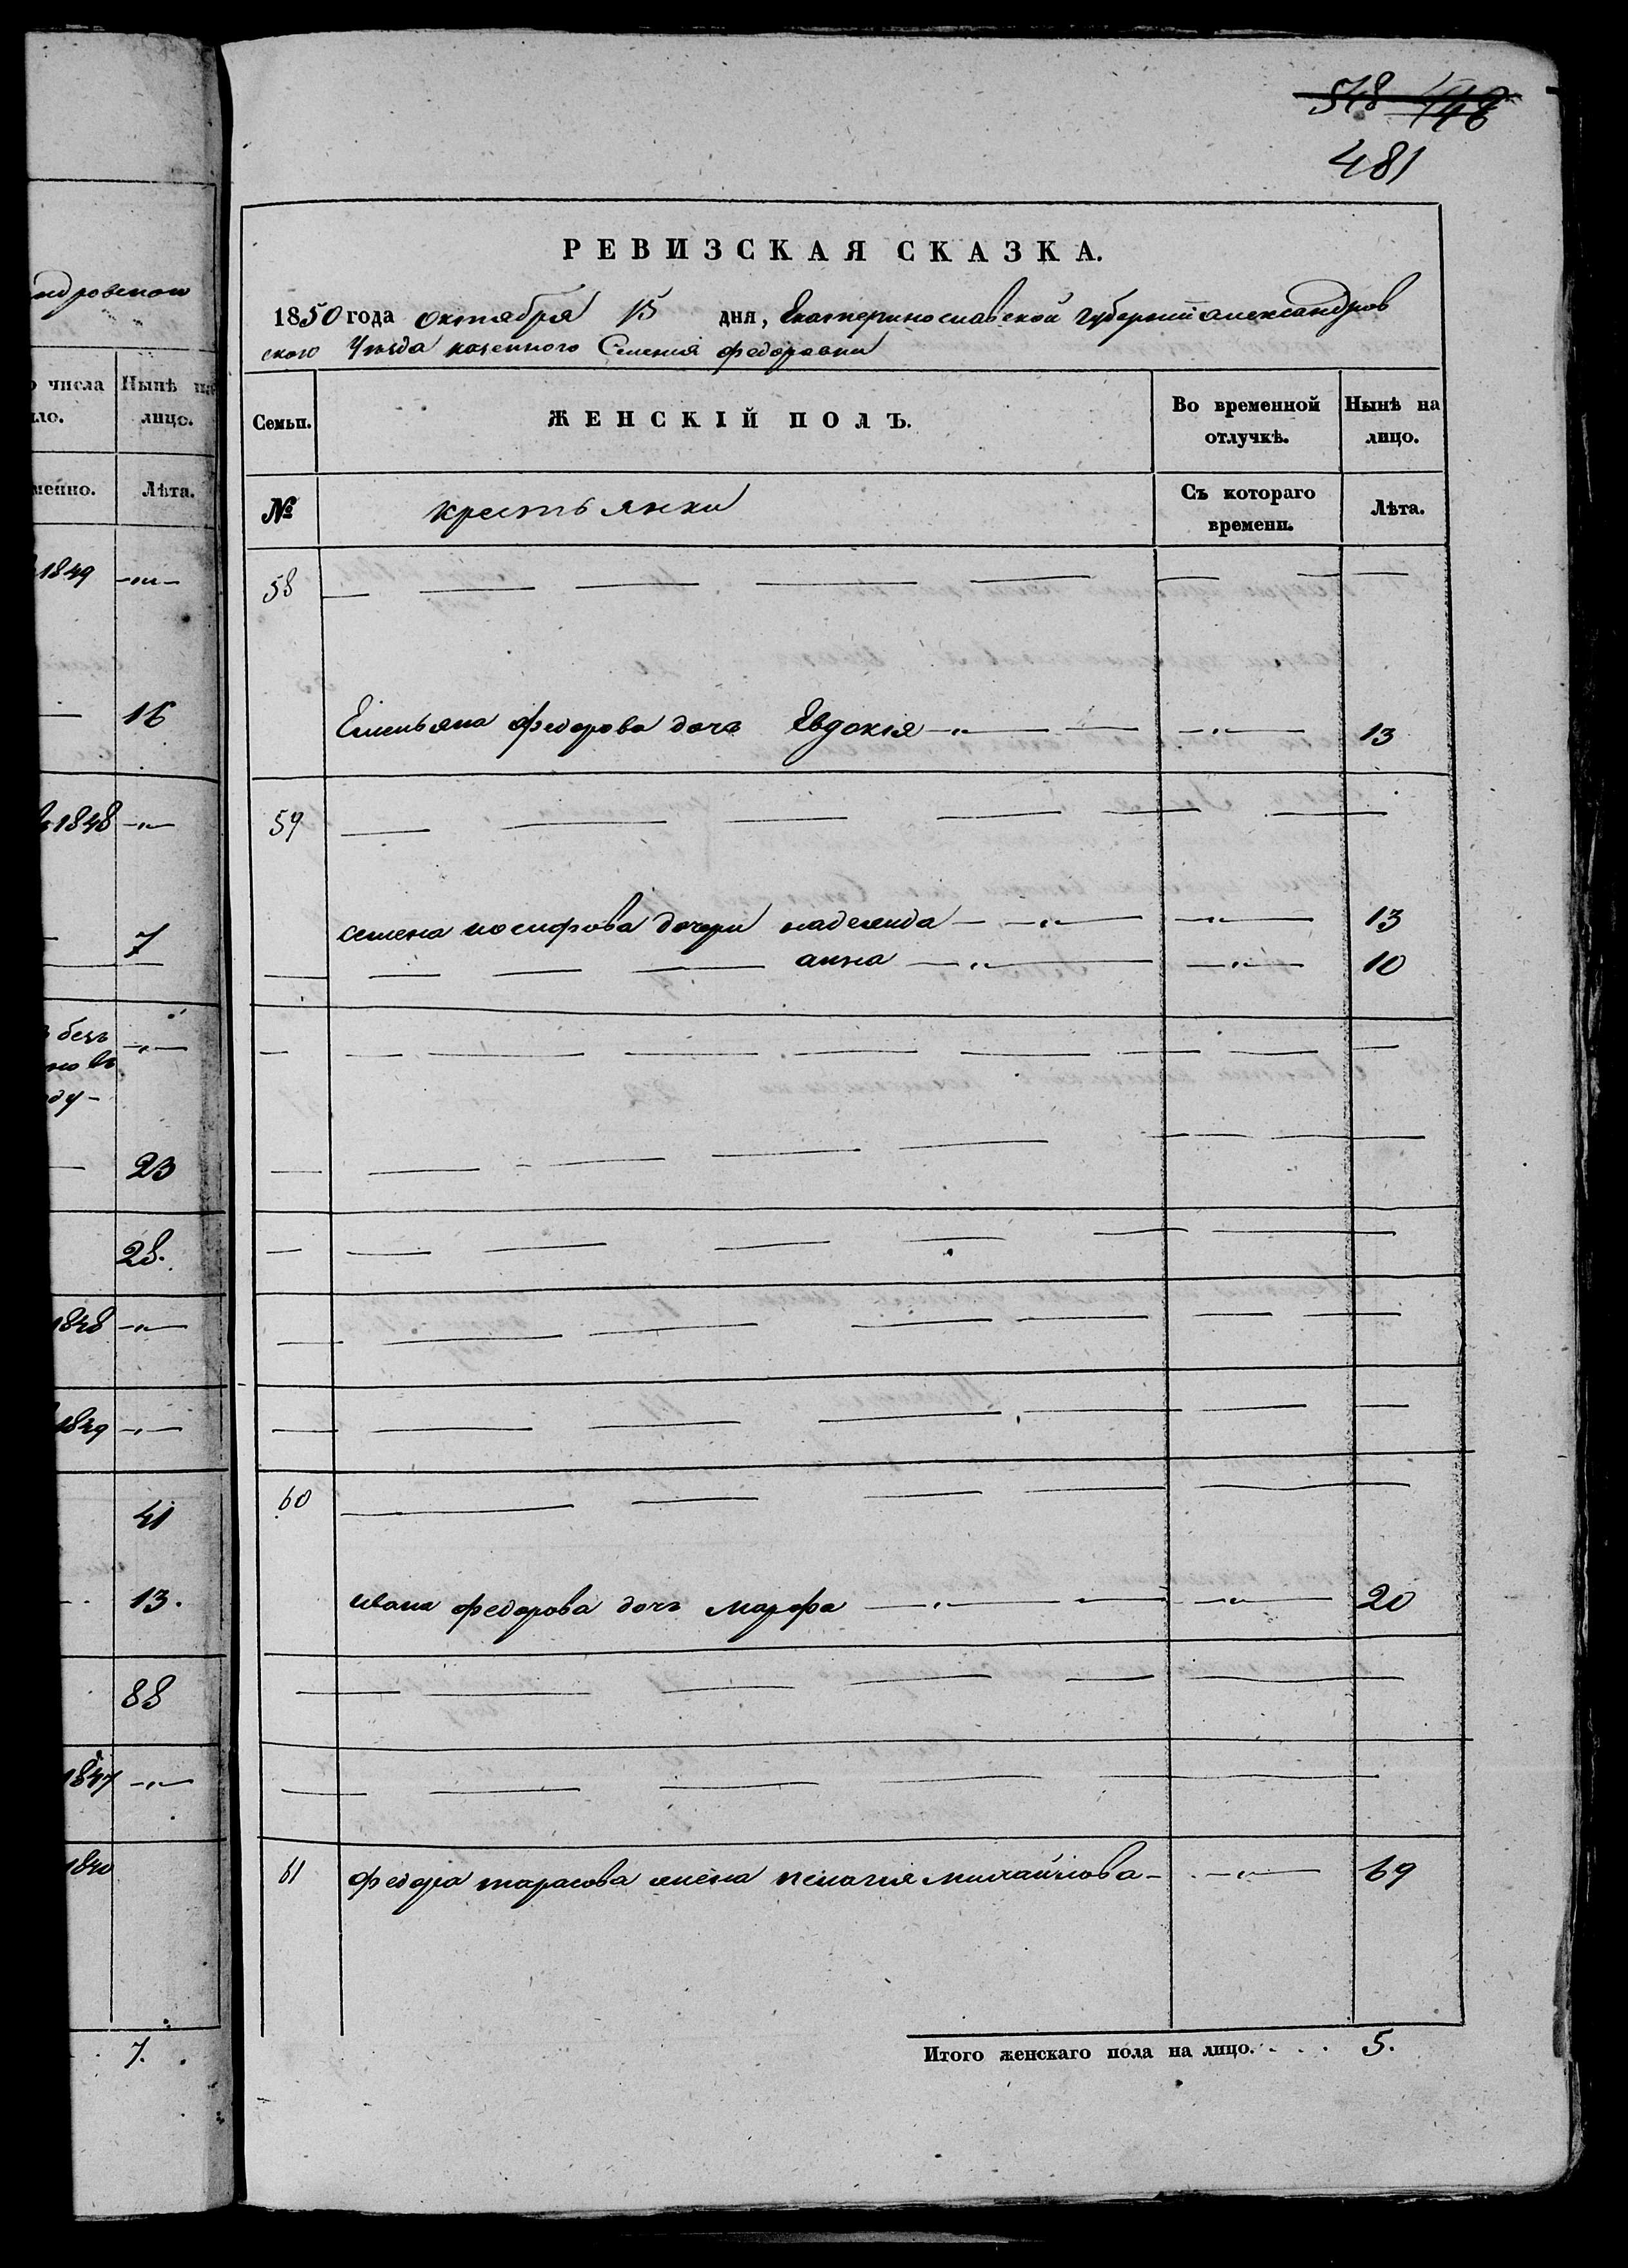 548 446
481
ндровскои
о числа Нынѣ на
ло. лицо.
мейно. Лѣта.
1849 —„—
— 16
1848 —„—
— 7
безъ —„—
но въ
оду —
— 23
28.
1848 —„—
1849 —„—
41
13.
88
1847 —„—
1840
7.
РЕВИЗСКАЯ СКАЗКА.
1850 года октября 15 дня, Екатеринославской губернiи александров
ского Уѣзда казенного Селенiя федоравки
Семьи. ЖЕНСКІЙ ПОЛЪ. Во временной отлучкѣ. Нынѣ на лицо.
№ крестьянки Съ котораго времени. Лѣта.
58 — — — — — — — —
Емельяна федорова дочь Евдокiя —„— — —„— 13
59 — — — — — — —
семена иосифова дочери надежда — —„— —„— 13
— — — — анна —„— —„— 10
— — — — — — — — —
— — — — — — — — —
— — — — — — —
— — — — — — — —
— — — — — — —
60 — — — — — —
ивана федорова дочь марфа —„— — —„— 20
— — — — — — —
— — — — — —
61 федора тарасова жена пелагия михайлова — —„— 69
Итого женскаго пола на лицо. . . . 5.